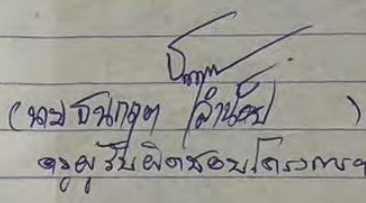 (นายธนกฤต ลำน้อย)
ครูผู้รับผิดชอบโครงการฯ